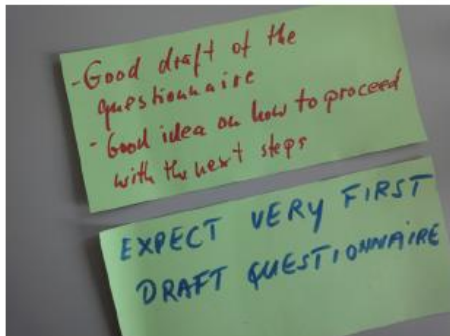 - Good draft of the
questionnaire
- Good idea on how to proceed
with the next steps
EXPECT VERY FIRST
DRAFT QUESTIONNAIRE